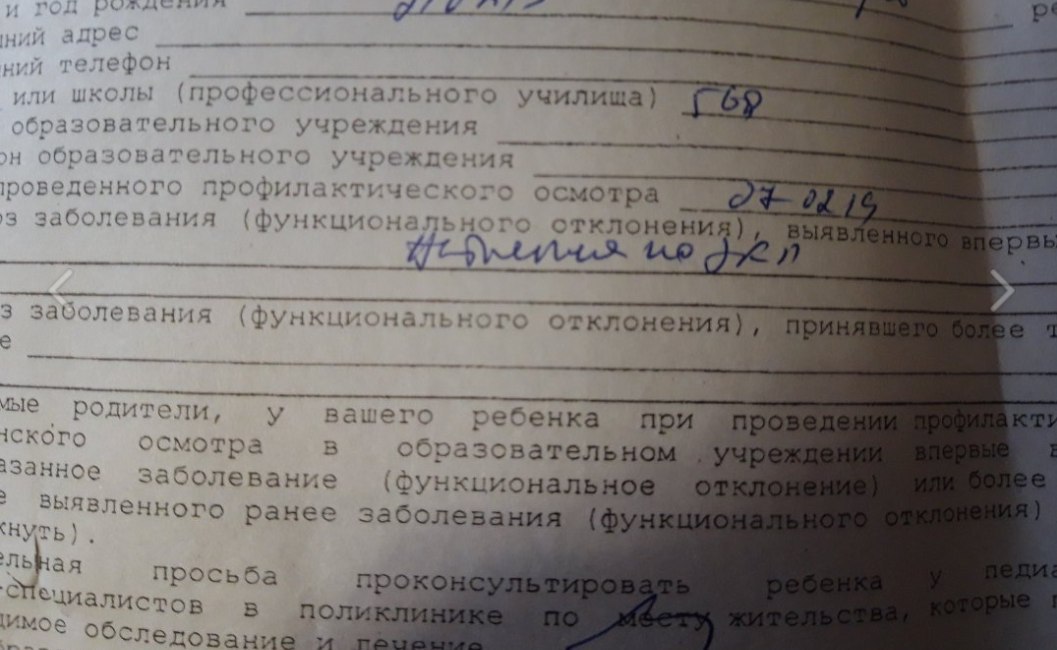 и год рождения
ний адрес
ний телефон
или школы (профессионального училища) 568
образовательного учреждения
он образовательного учреждения
проведенного профилактического осмотра 07 02 19
оз заболевания (функционального отклонения), выявленного впервы
по ЭКГ
з заболевания (функционального отклонения), принявшего более т
е
мые родители, у вашего ребенка при проведении профилакти
нского осмотра в образовательном учреждении впервые в
азанное заболевание (функциональное отклонение) или более
е выявленного ранее заболевания (функционального отклонения)
кнуть).
ельная просьба проконсультировать ребенка у педиа
-специалистов в поликлинике по месту жительства, которые п
димое обследование и лечение